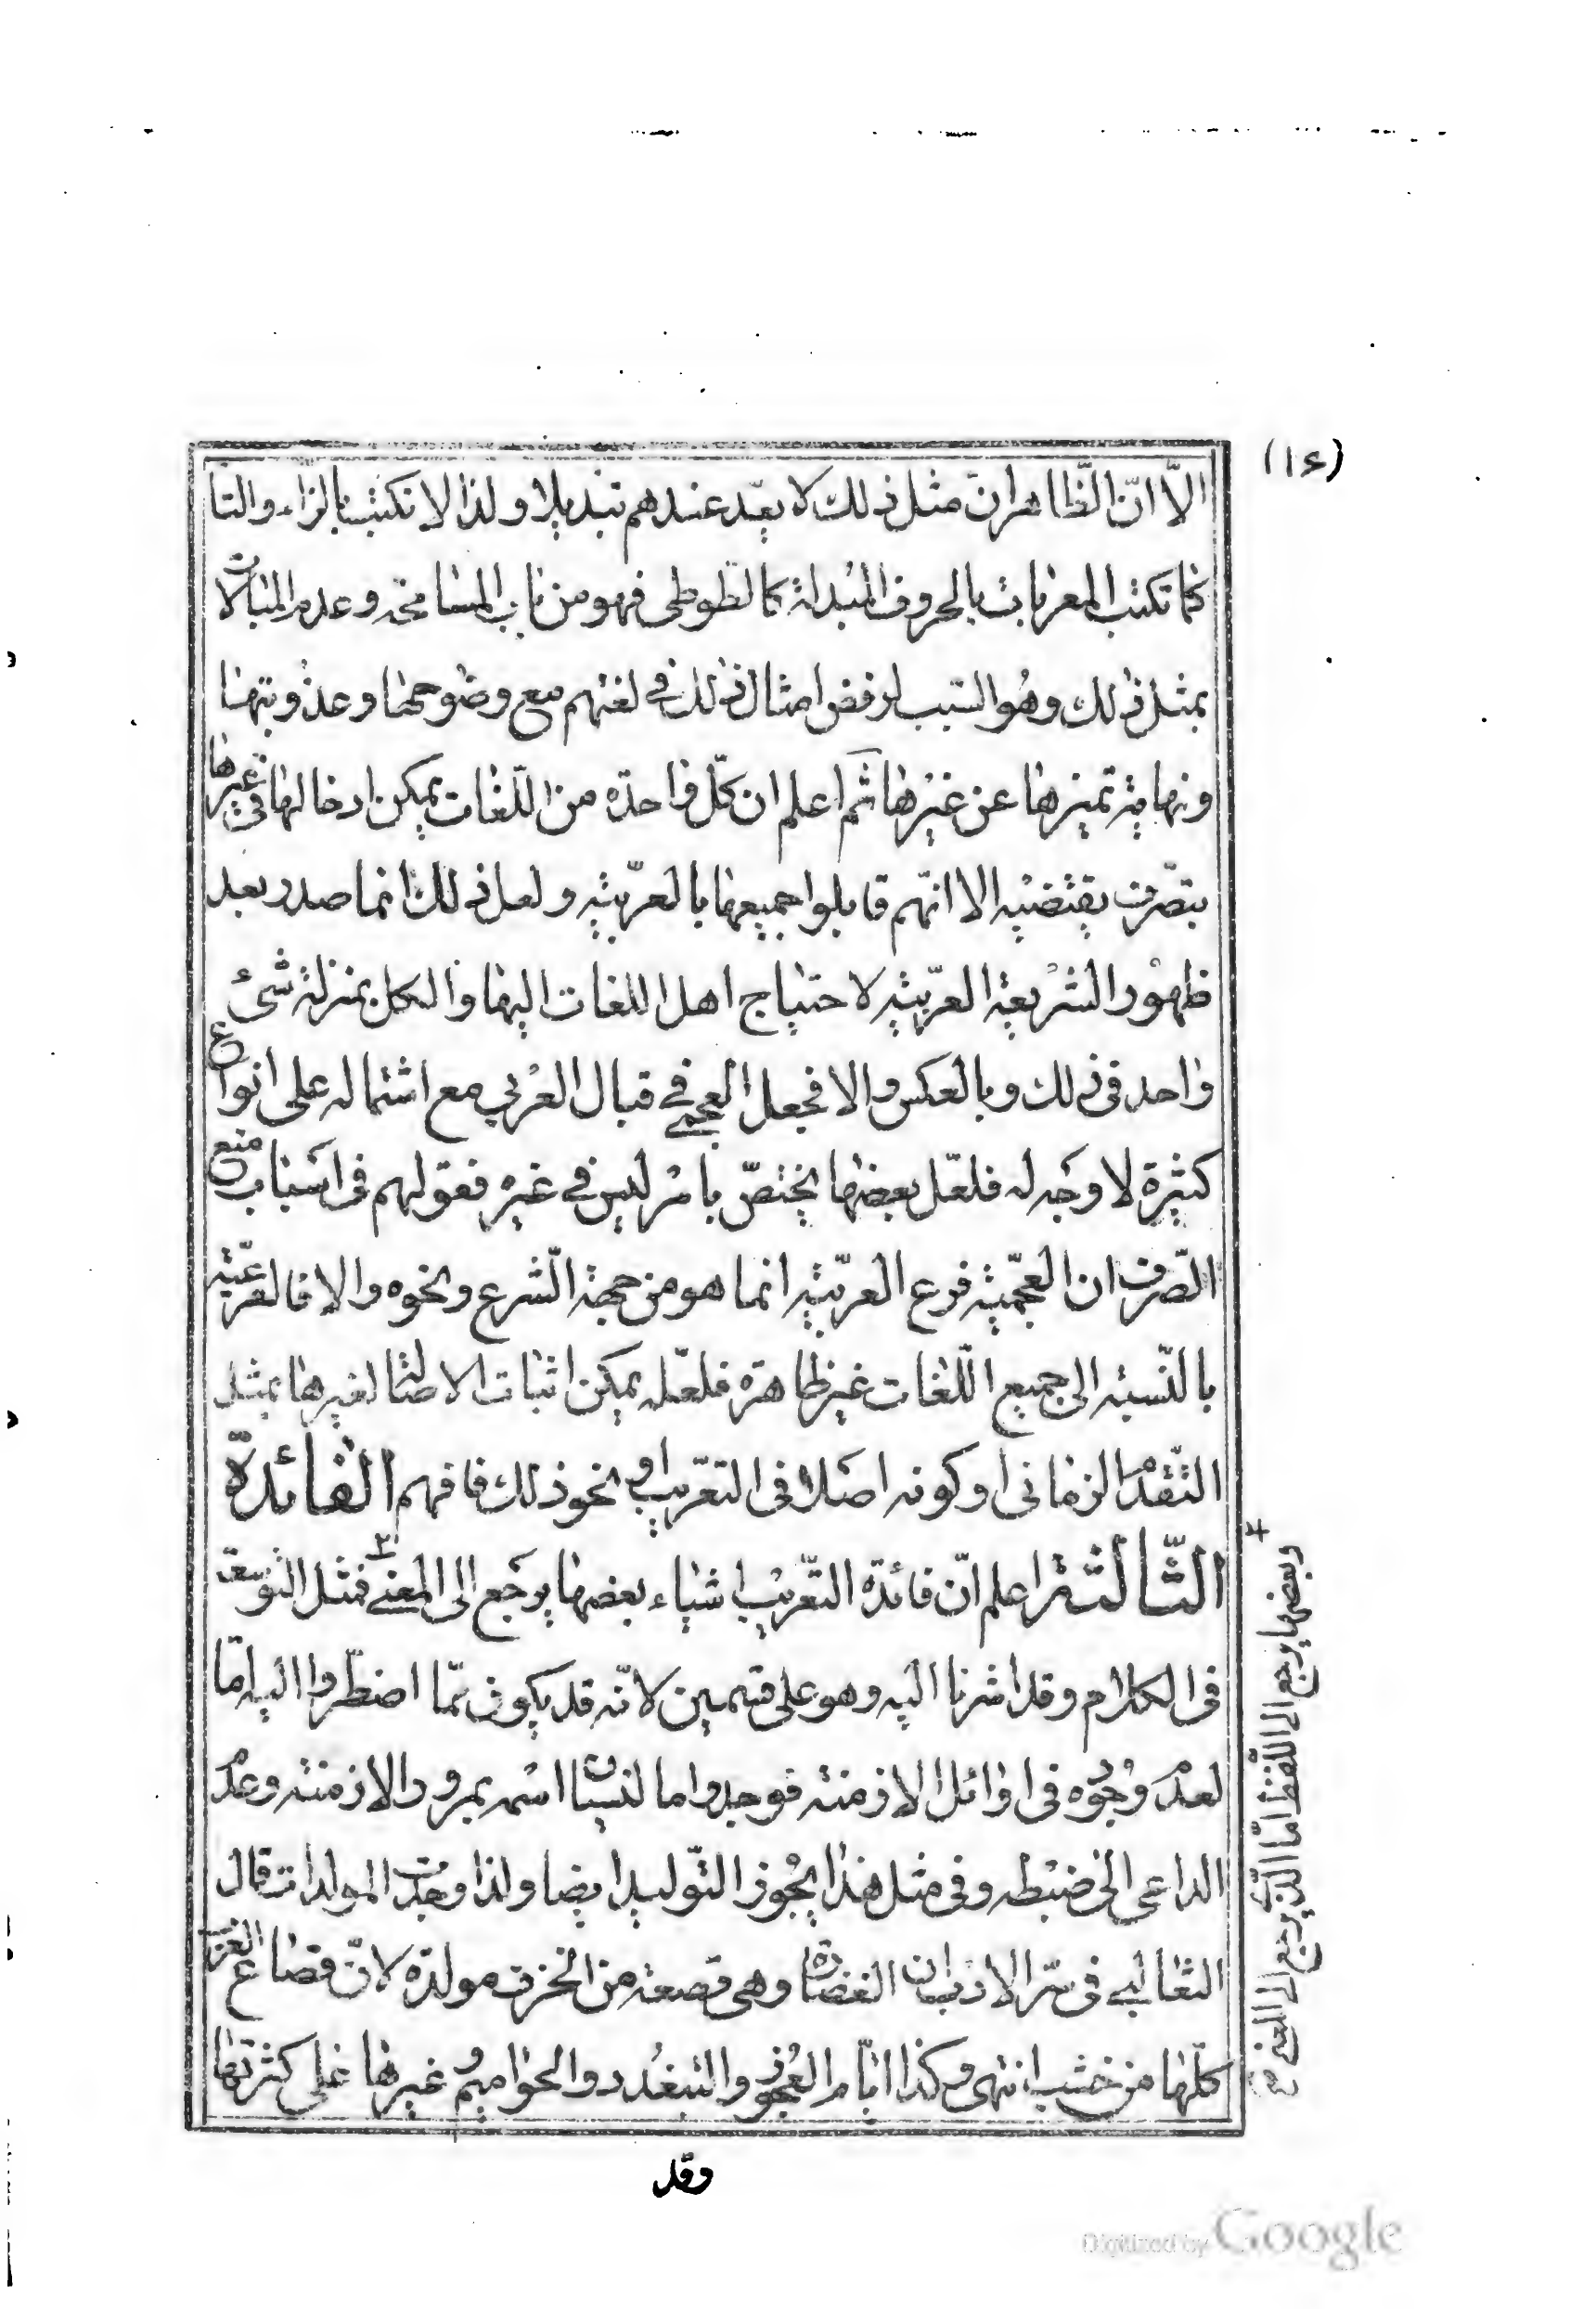 (١٤)
الاّ انّ الظّاهر ان مثل ذلك لا يعّد عندهم تبديلا ولذا لا نكتبنا بالزاء والتا
كما تكتب المعربات بالحروف المبدلة كالطوطى فهو من باب المسامحة وعدم المبالات
بمثل ذلك وهو السّبب لرفض امثال ذلك في لغتهم مع وضوحها وعذوبتها
ونهاية تميزها عن غيرها ثم اعلم ان كلّ واحدة من اللّغات يمكن ادخالها في غيرها
بتصّرف يقتضيه الا انّهم قابلوا جميعها بالعربّية ولعل ذلك انما صدر بعد
ظهور الشريعة العربّية لاحتياج اهل اللغات اليها والكل بمنزلة شئ
واحد في ذلك وبالعكس والا فجعل العجمي في قبال العربي مع اشتماله على انواع
كثيرة لا وجه له فلعّل بعضها يختصّ بامر ليس في غيره فقولهم في اسباب منع
الصّرف ان العجّمية فرع العربّية انما هو من جهة الّشرع ونحوه والا فالفرعّية
بالنّسبة الى جميع اللّغات غير ظاهرة فلعّله يمكن اثبات الاصالة لغيرها بمثل
التّقدم الزماني او كونه اصلا في التعّريب او نحو ذلك فافهم الفائدة
الثّالثة اعلم انّ فائدة التعّريب اشياء بعضها يرجع الى المعنى فمثل التوسعة
في الكلام وقد اشرنا اليه وهو على قسمين لانّه قد يكون ممّا اضطّروا اليه امّا
لعدم وجوده في اوائل الازمنة فوجد واما لنسيان اسمه بمرور الازمنة وعدم
الداعي الى ضبطه وفي مثل هذا يجوز التّوليد ايضا ولذا وجدت المولدات قال
الثعالبي في سّر الادب ان الغضارة وهي قصعة من الخزف مولدة لانّ قصاع العرب
كلّها من خشب انتهى وكذا ايّام العجوز والتبغدد والحواميم وغيرها على كثرتها
وبعضها يرجع الى اللّفظ امّا الذّي يرجع الى المعنى صح
وقد
Digitized by Google